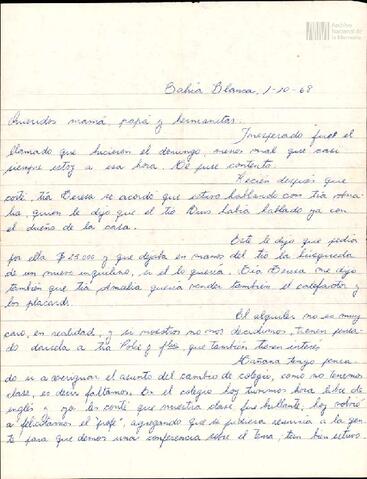 Archivo
Nacional de
la Memoria
Bahía Blanca, 1-10-68
Queridos mamá, papá y hermanitas:
Inesperado fue el
llamado que hicieron el domingo, menos mal que casi
siempre estoy a esa hora. Me puse contento.
Recién después que
corté tía Teresa se acordó que estuvo hablando con tía Ama-
lia, quien le dijo que el tío Dino había hablado ya con
el dueño de la casa.
Este le dijo que pedía
por ella $ 25.000 y que dejaba en manos del tío la búsqueda
de un nuevo inquilino, si él lo quería. Tía Teresa me dijo
también que tía Amalia quería vender también el calefactor y
los placards.
El alquiler no es muy
caro, en realidad, y si nosotros no nos decidimos, tienen pensa-
do dárcela a tía Pola y que también tienen interés
Mañana tengo pensa-
do ir a averiguar el asunto del cambio de colegio, como no tenemos
clase, es decir faltamos. En el colegio hoy tuvimos hora libre de
inglés y ya les conté que nuestra clase fue brillante, hoy volvió
a felicitarnos el "profe", agregando que si pudiera reuniría a la gen-
te para que demos una conferencia sobre el tema, tan bien estuvo.